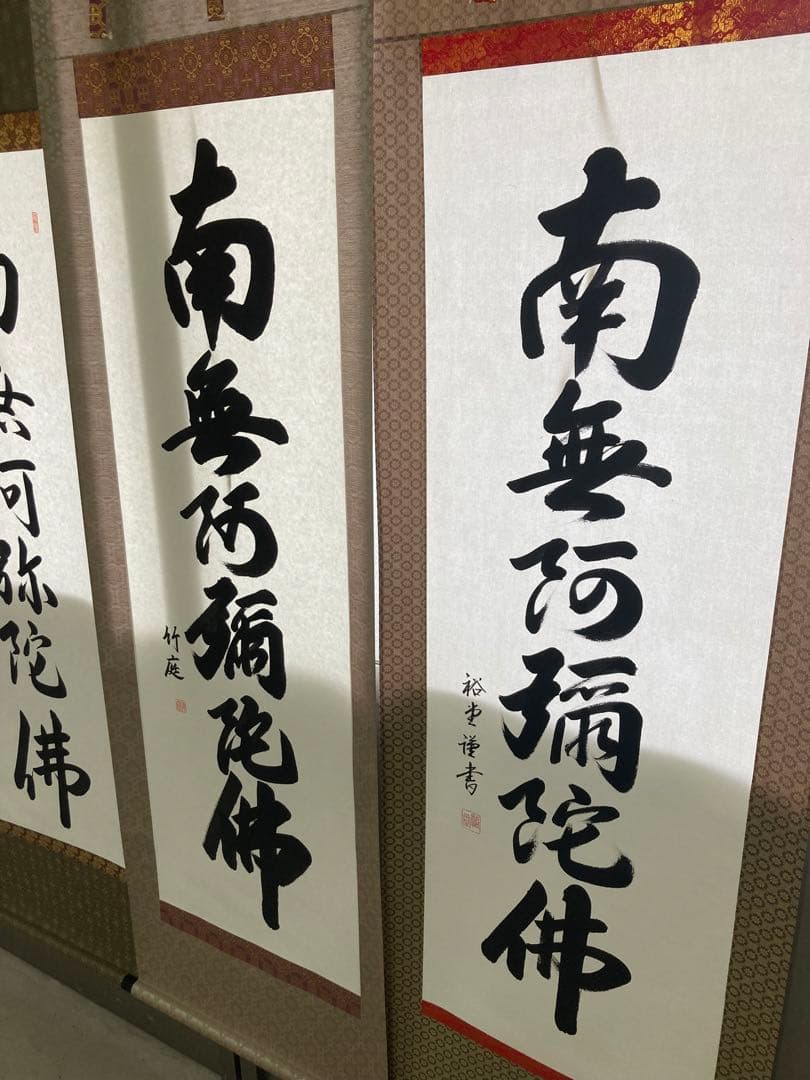 南無阿彌陀佛
裕堂謹書
南無阿彌陀佛
竹庭
弥陀佛